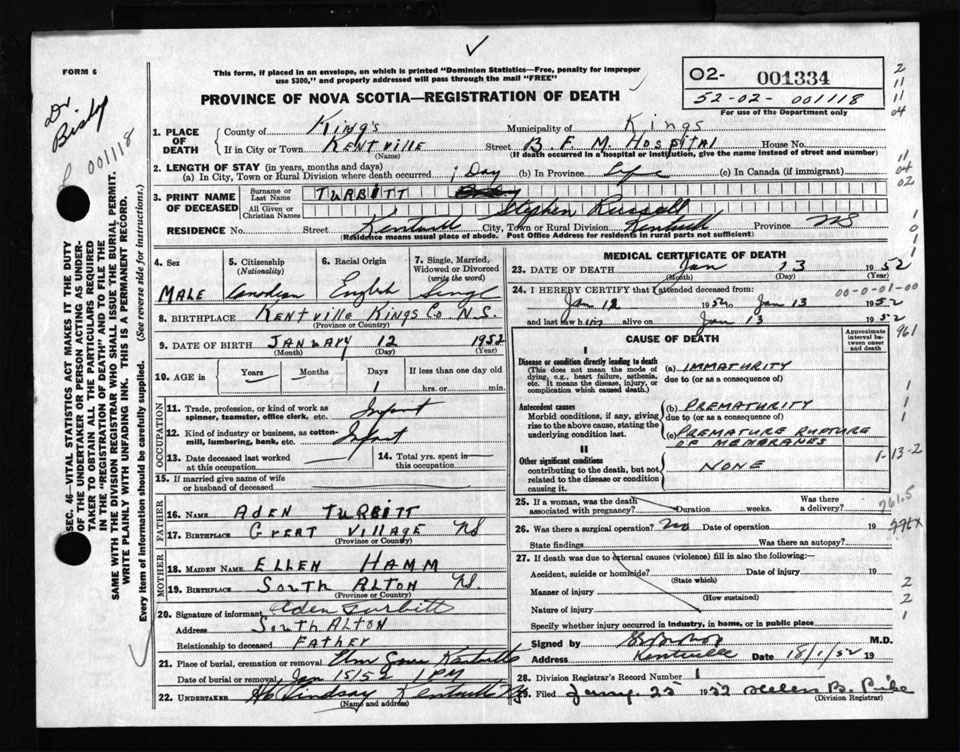 FORM 6
This form, if placed in an envelope, on which is printed "Dominion Statistics—Free, penalty for improper
use $300," and properly addressed will pass through the mail "FREE"
PROVINCE OF NOVA SCOTIA—REGISTRATION OF DEATH
O2- 001334
52-02- 001118
For use of the Department only
2
11
11
04
Dr.
001118
SEC. 46—VITAL STATISTICS ACT MAKES IT THE DUTY
OF THE UNDERTAKER OR PERSON ACTING AS UNDER-
TAKER TO OBTAIN ALL THE PARTICULARS REQUIRED
IN THE "REGISTRATION OF DEATH" AND TO FILE THE
SAME WITH THE DIVISION REGISTRAR WHO SHALL ISSUE THE BURIAL PERMIT.
WRITE PLAINLY WITH UNFADING INK. THIS IS A PERMANENT RECORD.
Every item of information should be carefully supplied. (See reverse side for instructions.)
1. PLACE OF DEATH
County of King's Municipality of Kings
If in City or Town KENTVILLE Street B. F. M. HOSPITAL House No.
(Name) (If death occurred in a hospital or institution, give the name instead of street and number)
2. LENGTH OF STAY (in years, months and days)
(a) In City, Town or Rural Division where death occurred 1 Day (b) In Province Life (c) In Canada (if immigrant)
11
04
02
3. PRINT NAME OF DECEASED
Surname or Last Name TURBITT
All Given or Christian Names Stephen Russell
RESIDENCE No. Street Kentville City, Town or Rural Division Kentville Province NS
(Residence means usual place of abode. Post Office Address for residents in rural parts not sufficient)
4. Sex 5. Citizenship (Nationality) 6. Racial Origin 7. Single, Married, Widowed or Divorced (write the word)
MALE Canadian English Single
8. BIRTHPLACE KENTVILLE KINGS CO. N.S.
(Province or Country)
9. DATE OF BIRTH JANUARY 12 1952
(Month) (Day) (Year)
10. AGE in Years Months Days 1 If less than one day old
hrs. or min.
OCCUPATION
11. Trade, profession, or kind of work as spinner, teamster, office clerk, etc. Infant
12. Kind of industry or business, as cotton-mill, lumbering, bank, etc. Infant
13. Date deceased last worked at this occupation
14. Total yrs. spent in this occupation
15. If married give name of wife or husband of deceased
FATHER
16. NAME ADEN TURBITT
17. BIRTHPLACE GREAT VILLAGE NS
(Province or Country)
MOTHER
18. MAIDEN NAME ELLEN HAMM
19. BIRTHPLACE SOUTH ALTON NS.
(Province or Country)
20. Signature of informant Aden Turbitt
Address SOUTH ALTON
Relationship to deceased FATHER
21. Place of burial, cremation or removal Kentville
Date of burial or removal Jan 15/52 1 PM
22. UNDERTAKER Lindsay Kentville
(Name and address)
MEDICAL CERTIFICATE OF DEATH
23. DATE OF DEATH Jan 13 1952
(Month) (Day) (Year)
24. I HEREBY CERTIFY that I attended deceased from: 00-0-01-00
Jan 12 1952 to Jan 13 1952
and last saw him alive on Jan 13 1952
CAUSE OF DEATH
Approximate interval between onset and death
961
I
Disease or condition directly leading to death
(This does not mean the mode of dying, e.g., heart failure, asthenia, etc. It means the disease, injury, or complication which caused death.)
(a) IMMATURITY
due to (or as a consequence of)
Antecedent causes
Morbid conditions, if any, giving rise to the above cause, stating the underlying condition last.
(b) PREMATURITY
due to (or as a consequence of)
(c) PREMATURE RUPTURE OF MEMBRANES
1-13-2
II
Other significant conditions
contributing to the death, but not related to the disease or condition causing it.
NONE
25. If a woman, was the death associated with pregnancy? Duration weeks. Was there a delivery?
961.5
26. Was there a surgical operation? No Date of operation 19
State findings Was there an autopsy?
27. If death was due to external causes (violence) fill in also the following:—
Accident, suicide or homicide? Date of injury 19
(State which)
Manner of injury
(How sustained)
Nature of injury
Specify whether injury occurred in industry, in home, or in public place
2
2
1
Signed by M.D.
Address Kentville Date 18/1/52 19
28. Division Registrar's Record Number 1
29. Filed Jany. 25 1952 Helen B. Pike
(Division Registrar)